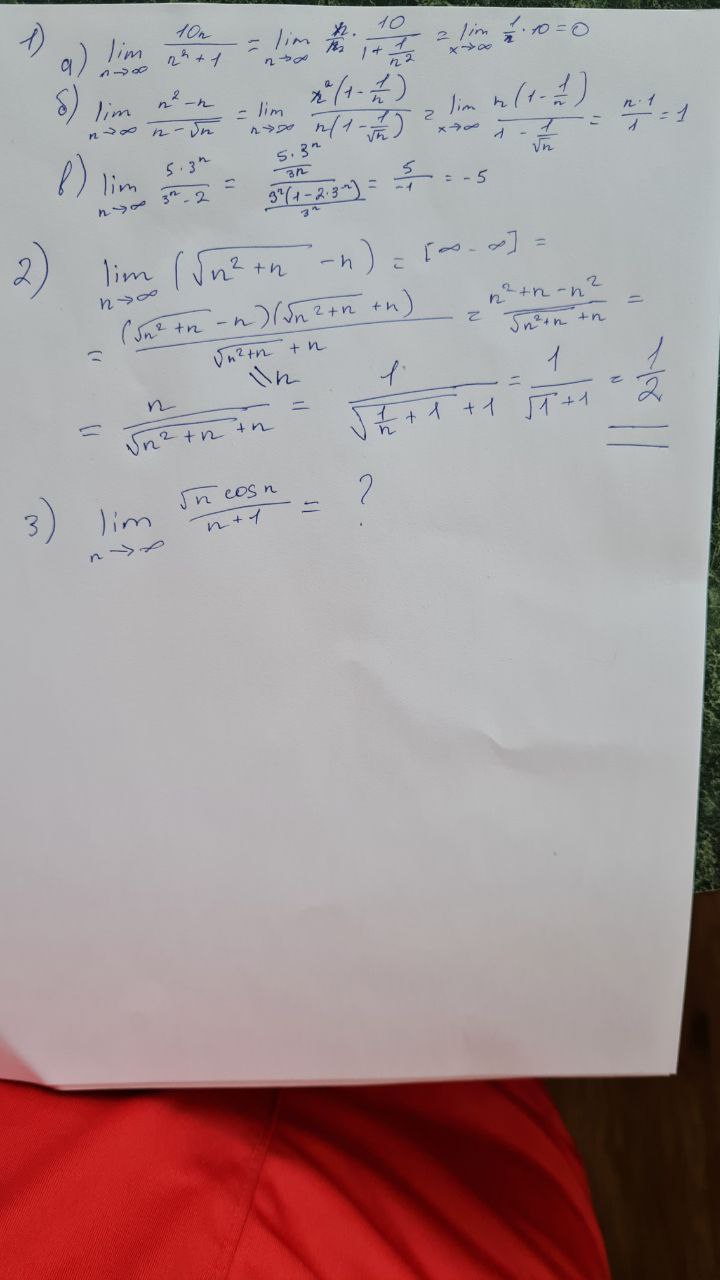 1) а) lim n→∞ 10n/(n²+1) = lim n→∞ n/n² · 10/(1 + 1/n²) = lim x→∞ 1/n · 10 = 0
б) lim n→∞ (n² - n)/(n - √n) = lim n→∞ n²(1 - 1/n)/(n(1 - 1/√n)) = lim x→∞ n(1 - 1/n)/(1 - 1/√n) = n·1/1 = 1
в) lim n→∞ 5·3ⁿ/(3ⁿ - 2) = (5·3ⁿ/3ⁿ)/(3ⁿ(1 - 2·3⁻ⁿ)/3ⁿ) = 5/-1 = -5
2) lim n→∞ (√(n² + n) - n) = [∞ - ∞] =
= (√(n² + n) - n)(√(n² + n) + n)/(√(n² + n) + n) = (n² + n - n²)/(√(n² + n) + n) =
= n/(√(n² + n) + n) \\n = 1/(√(1/n + 1) + 1) = 1/(√1 + 1) = 1/2
3) lim n→∞ √n cos n/(n + 1) = ?